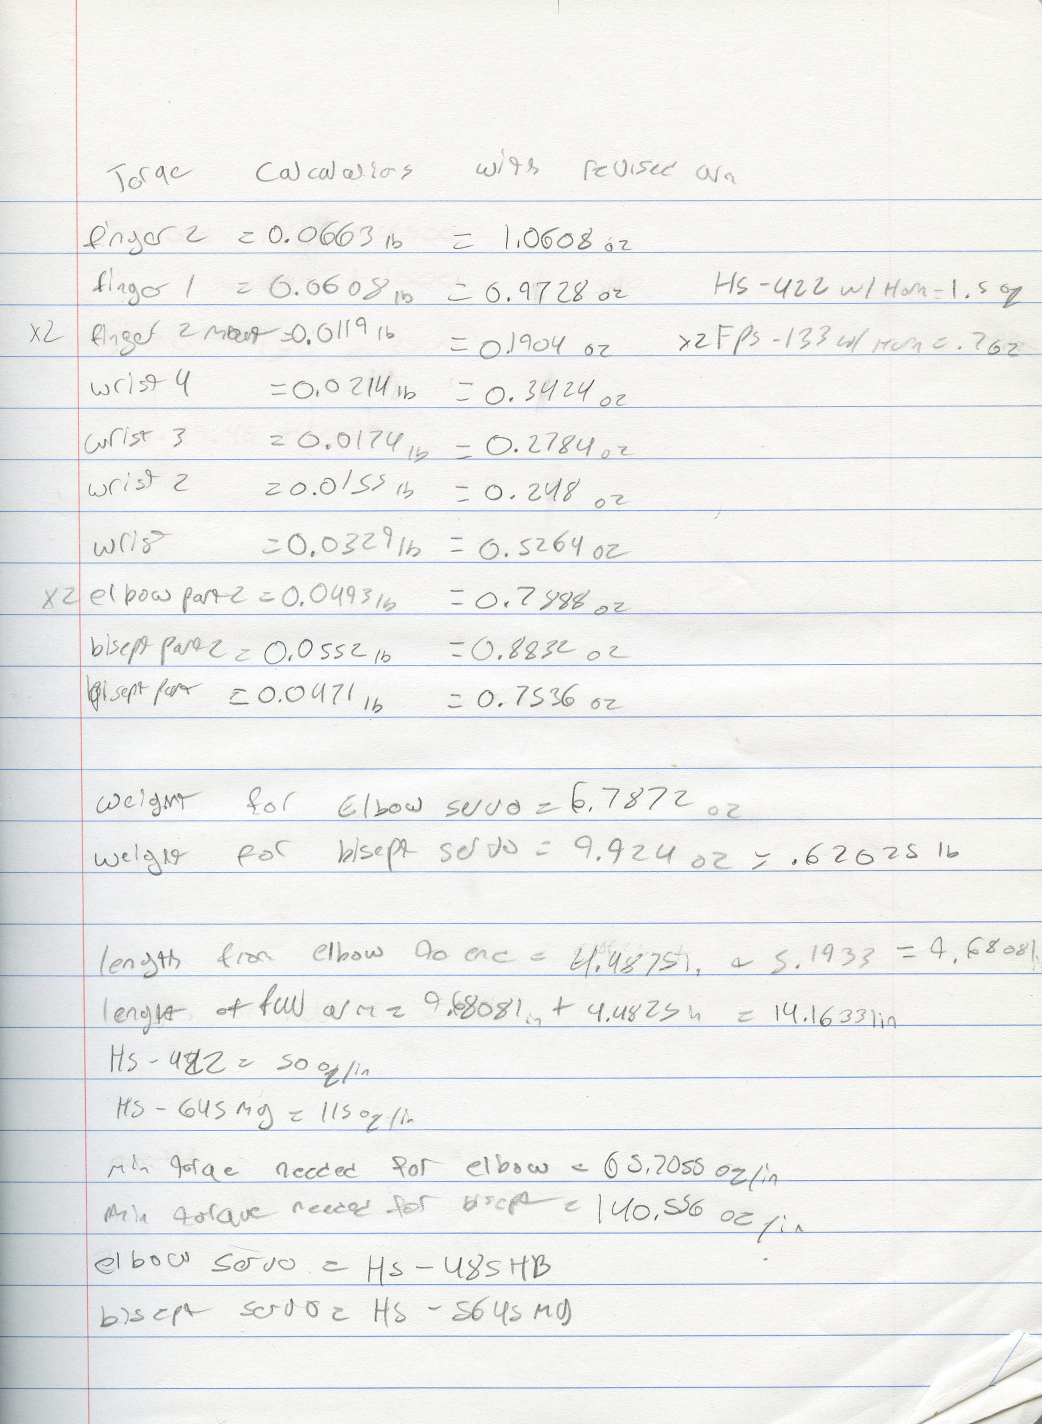 Torqe Calculations with revised arm
finger 2 = 0.0663 lb = 1.0608 oz
finger 1 = 0.0608 lb = 0.9728 oz HS-422 w/ Horn = 1.5 oz
x2 finger 2 mount = 0.0119 lb = 0.1904 oz x2 FPS-133 w/ Horn = .7oz
wrist 4 = 0.0214 lb = 0.3424 oz
wrist 3 = 0.0174 lb = 0.2784 oz
wrist 2 = 0.0155 lb = 0.248 oz
wrist = 0.0329 lb = 0.5264 oz
x2 elbow part 2 = 0.0493 lb = 0.7888 oz
bisept part 2 = 0.0552 lb = 0.8832 oz
bisept part = 0.0471 lb = 0.7536 oz
weight for Elbow servo = 6.7872 oz
weight for bisept servo = 9.924 oz = .62025 lb
length from elbow to end = 4.4875in + 5.1933 = 9.6808in
lenght of full arm = 9.6808in + 4.4825in = 14.1633in
HS-422 = 50 oz/in
HS-645 Mg = 115 oz/in
Min torqe needed for elbow = 65.7055 oz/in
Min torque needed for bisept = 140.556 oz/in
elbow servo = HS-485HB
bisept servo = HS-5645 MG